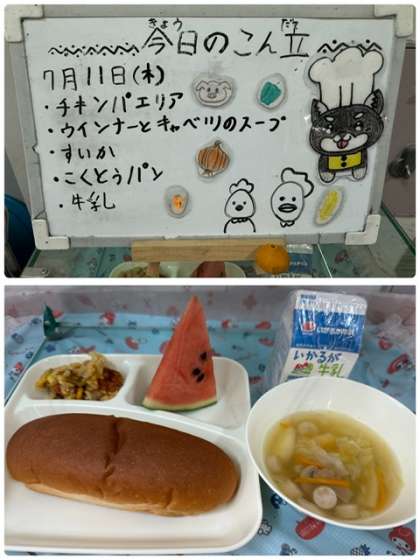 今日のこん立
きょう だて
7月11日(木)
・チキンパエリア
・ウインナーとキャベツのスープ
・すいか
・こくとうパン
・牛乳
いかるが
牛乳